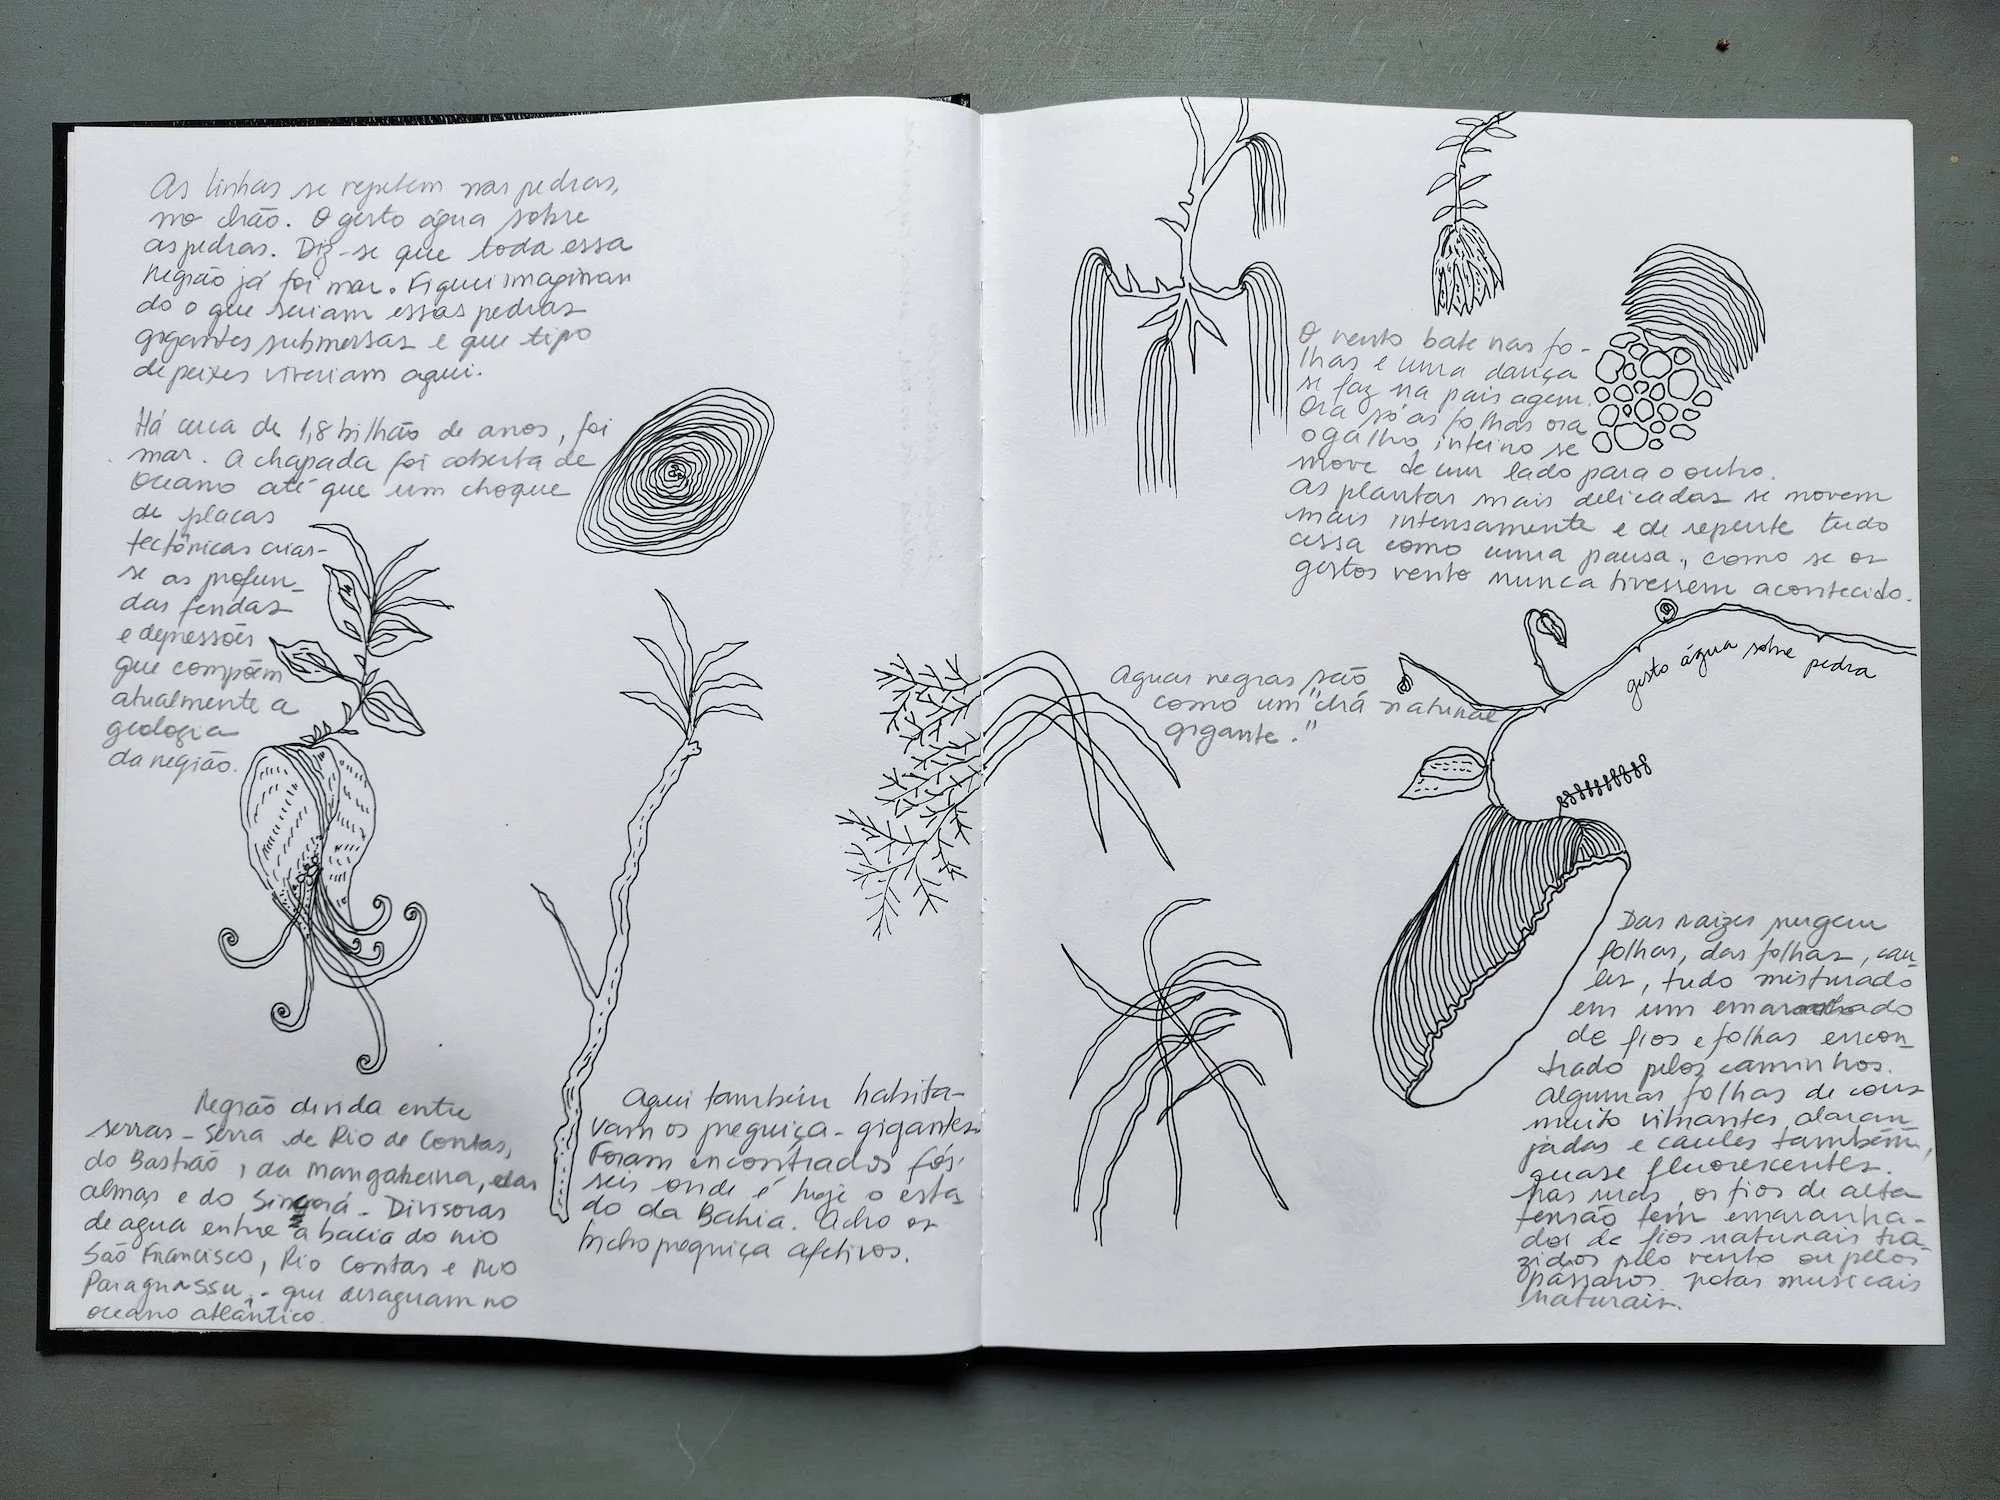 As linhas se repetem nas pedras,
no chão. O gesto água sobre
as pedras. Diz-se que toda essa
região já foi mar. Fiquei imaginan
do o que seriam essas pedras
gigantes submersas e que tipo
de peixes viveriam aqui.
Há cerca de 1,8 bilhão de anos, foi
mar. A chapada foi coberta de
oceano até que um choque
de placas
tectônicas crias-
se as profun-
das fendas
e depressões
que compõem
atualmente a
geologia
da região.
Região divida entre
serras - Serra de Rio de Contas,
do Bastião, da Mangabeira, das
almas e do Sincorá. Divisoras
de água entre a bacia do rio
São Francisco, Rio Contas e rio
Paraguassu, - que desaguam no
oceano atlântico.
Aqui também habita-
vam os preguiça-gigantes.
Foram encontrados fós-
seis onde é hoje o esta
do da Bahia. Acho os
bicho preguiça afetivos.
O vento bate nas fo-
lhas e uma dança
se faz na paisagem.
Ora só as folhas ora
o galho inteiro se
move de um lado para o outro.
As plantas mais delicadas se movem
mais intensamente e de repente tudo
cessa como uma pausa, como se os
gestos vento nunca tivessem acontecido.
gesto água sobre pedra
Aguas negras são
como um "chá natural
gigante."
Das raizes surgem
folhas, das folhas, cau-
les, tudo misturado
em um emaranhado
de fios e folhas encon-
trado pelos caminhos.
Algumas folhas de cores
muito vibrantes alaran
jadas e caules também,
quase fluorescentes.
Nas ruas, os fios de alta
tensão tem emaranha-
dos de fios naturais tra-
zidos pelo vento ou pelos
pássaros. notas musicais
naturais.